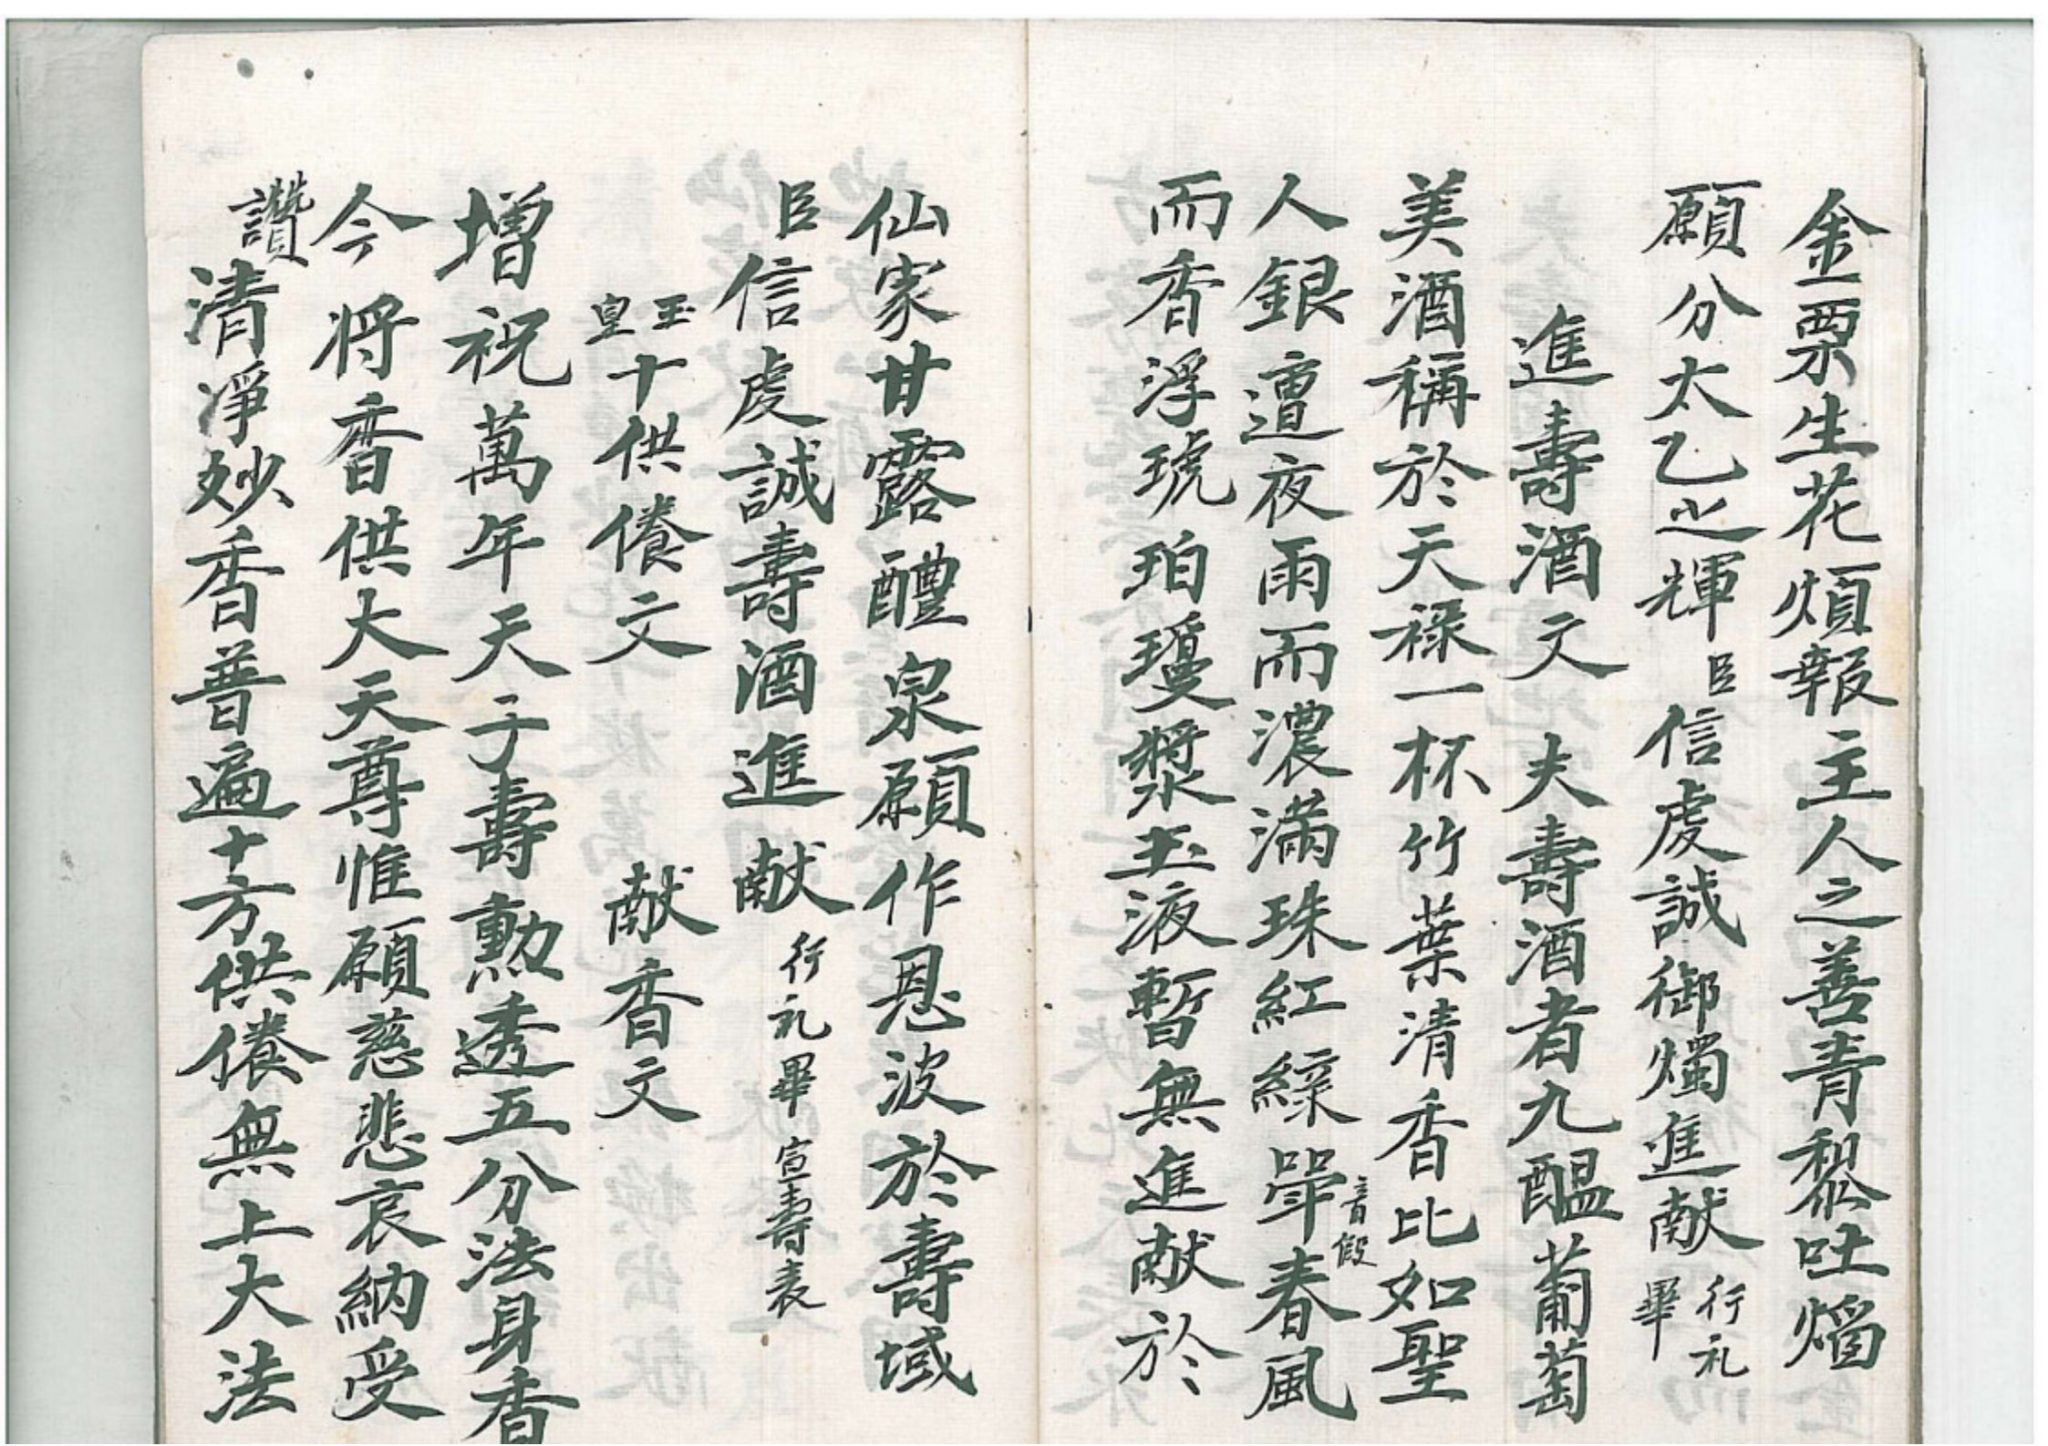 金粟生花煩報主人之善青藜吐熖
願分太乙之輝臣信虔誠御燭進献行礼畢
進壽酒文　夫壽酒者九醖葡萄
美酒稱於天禄一杯竹葉清香比如聖
人銀遭夜雨而濃滿珠紅緑斝音假春風
而香浮琥珀瓊漿玉液暫無進献於
仙家甘露醴泉願作恩波於壽域
臣信虔誠壽酒進献行礼畢宣壽表
玉皇十供俻文　献香文
增祝萬年天子壽勲透五分法身香
今將香供大天尊惟願慈悲哀納受
讚清淨妙香普遍十方供俻無上大法